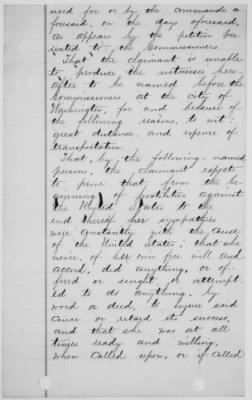 need for or by the commands a
foresaid, on the days aforesaid,
as appears by the petition pre
sented to the Commissioners.
That the claimant is unable
to produce the witnesses here-
after to be named before the
Commissioners at the city of
Washington, for and because of
the following reasons, to wit:
great distance, and expence of
transportation.
That, by the following-named
persons, the claimant expects
to prove that, from the be-
ginning of hostilities against
the United States to the
end thereof her sympathies
were constantly with the cause
of the United States; that she
never, of her own free will and
accord, did anything, or of-
fered or sought, or attempt-
ed to do anything, by
word or deed, to injure said
cause or retard its success,
and that she was at all
times ready and willing,
when called upon, or if called